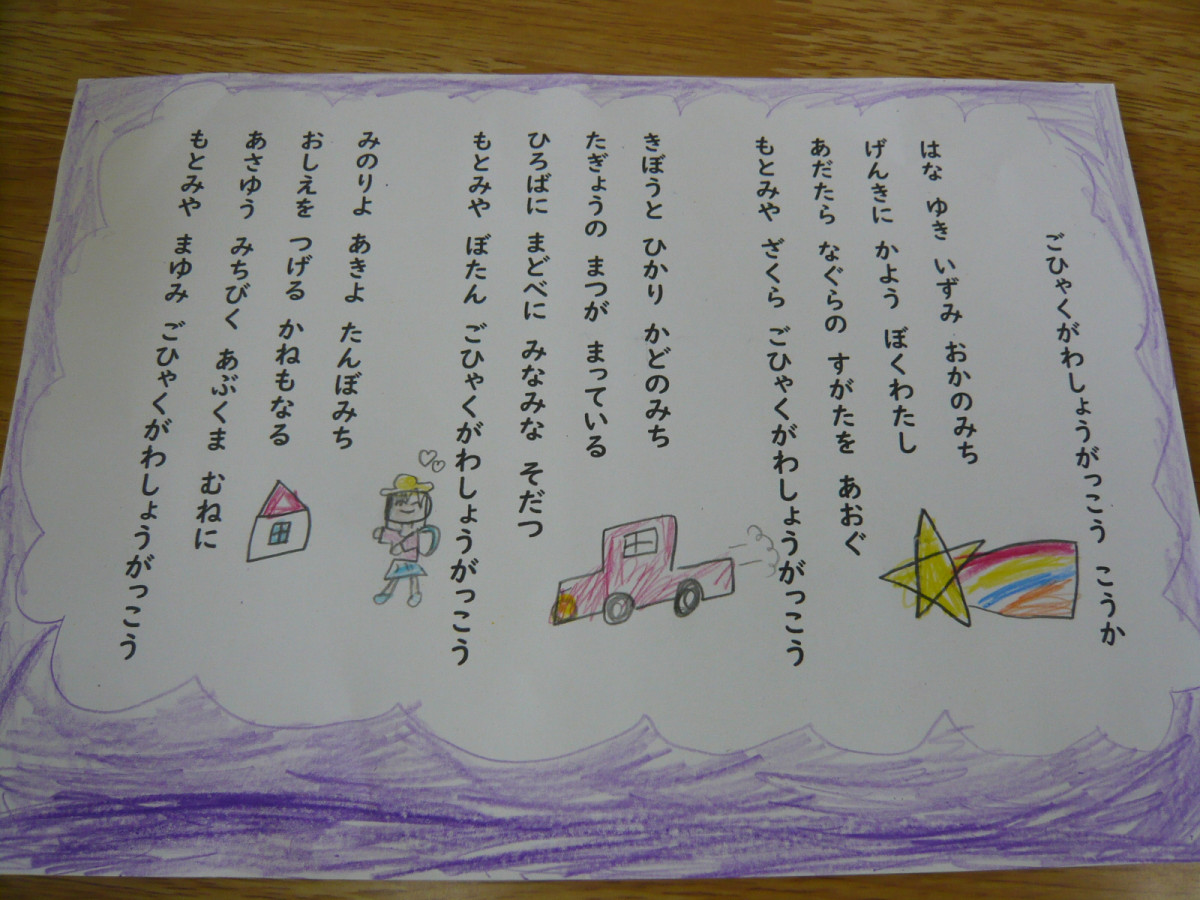 ごひゃくがわしょうがっこう こうか
はな ゆき いずみ おかのみち
げんきに かよう ぼくわたし
あだたら なぐらの すがたを あおぐ
もとみや ざくら ごひゃくがわしょうがっこう
きぼうと ひかり かどのみち
たぎょうの まつが まっている
ひろばに まどべに みなみな そだつ
もとみや ぼたん ごひゃくがわしょうがっこう
みのりよ あきよ たんぼみち
おしえを つげる かねもなる
あさゆう みちびく あぶくま むねに
もとみや まゆみ ごひゃくがわしょうがっこう